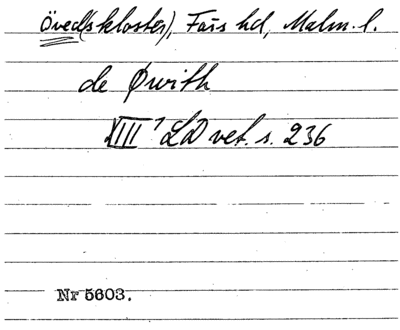 Öved(skloster), Färs hd, Malm. l.
de Øwith
XIII¹ LD vet. s. 236
Nr 5603.